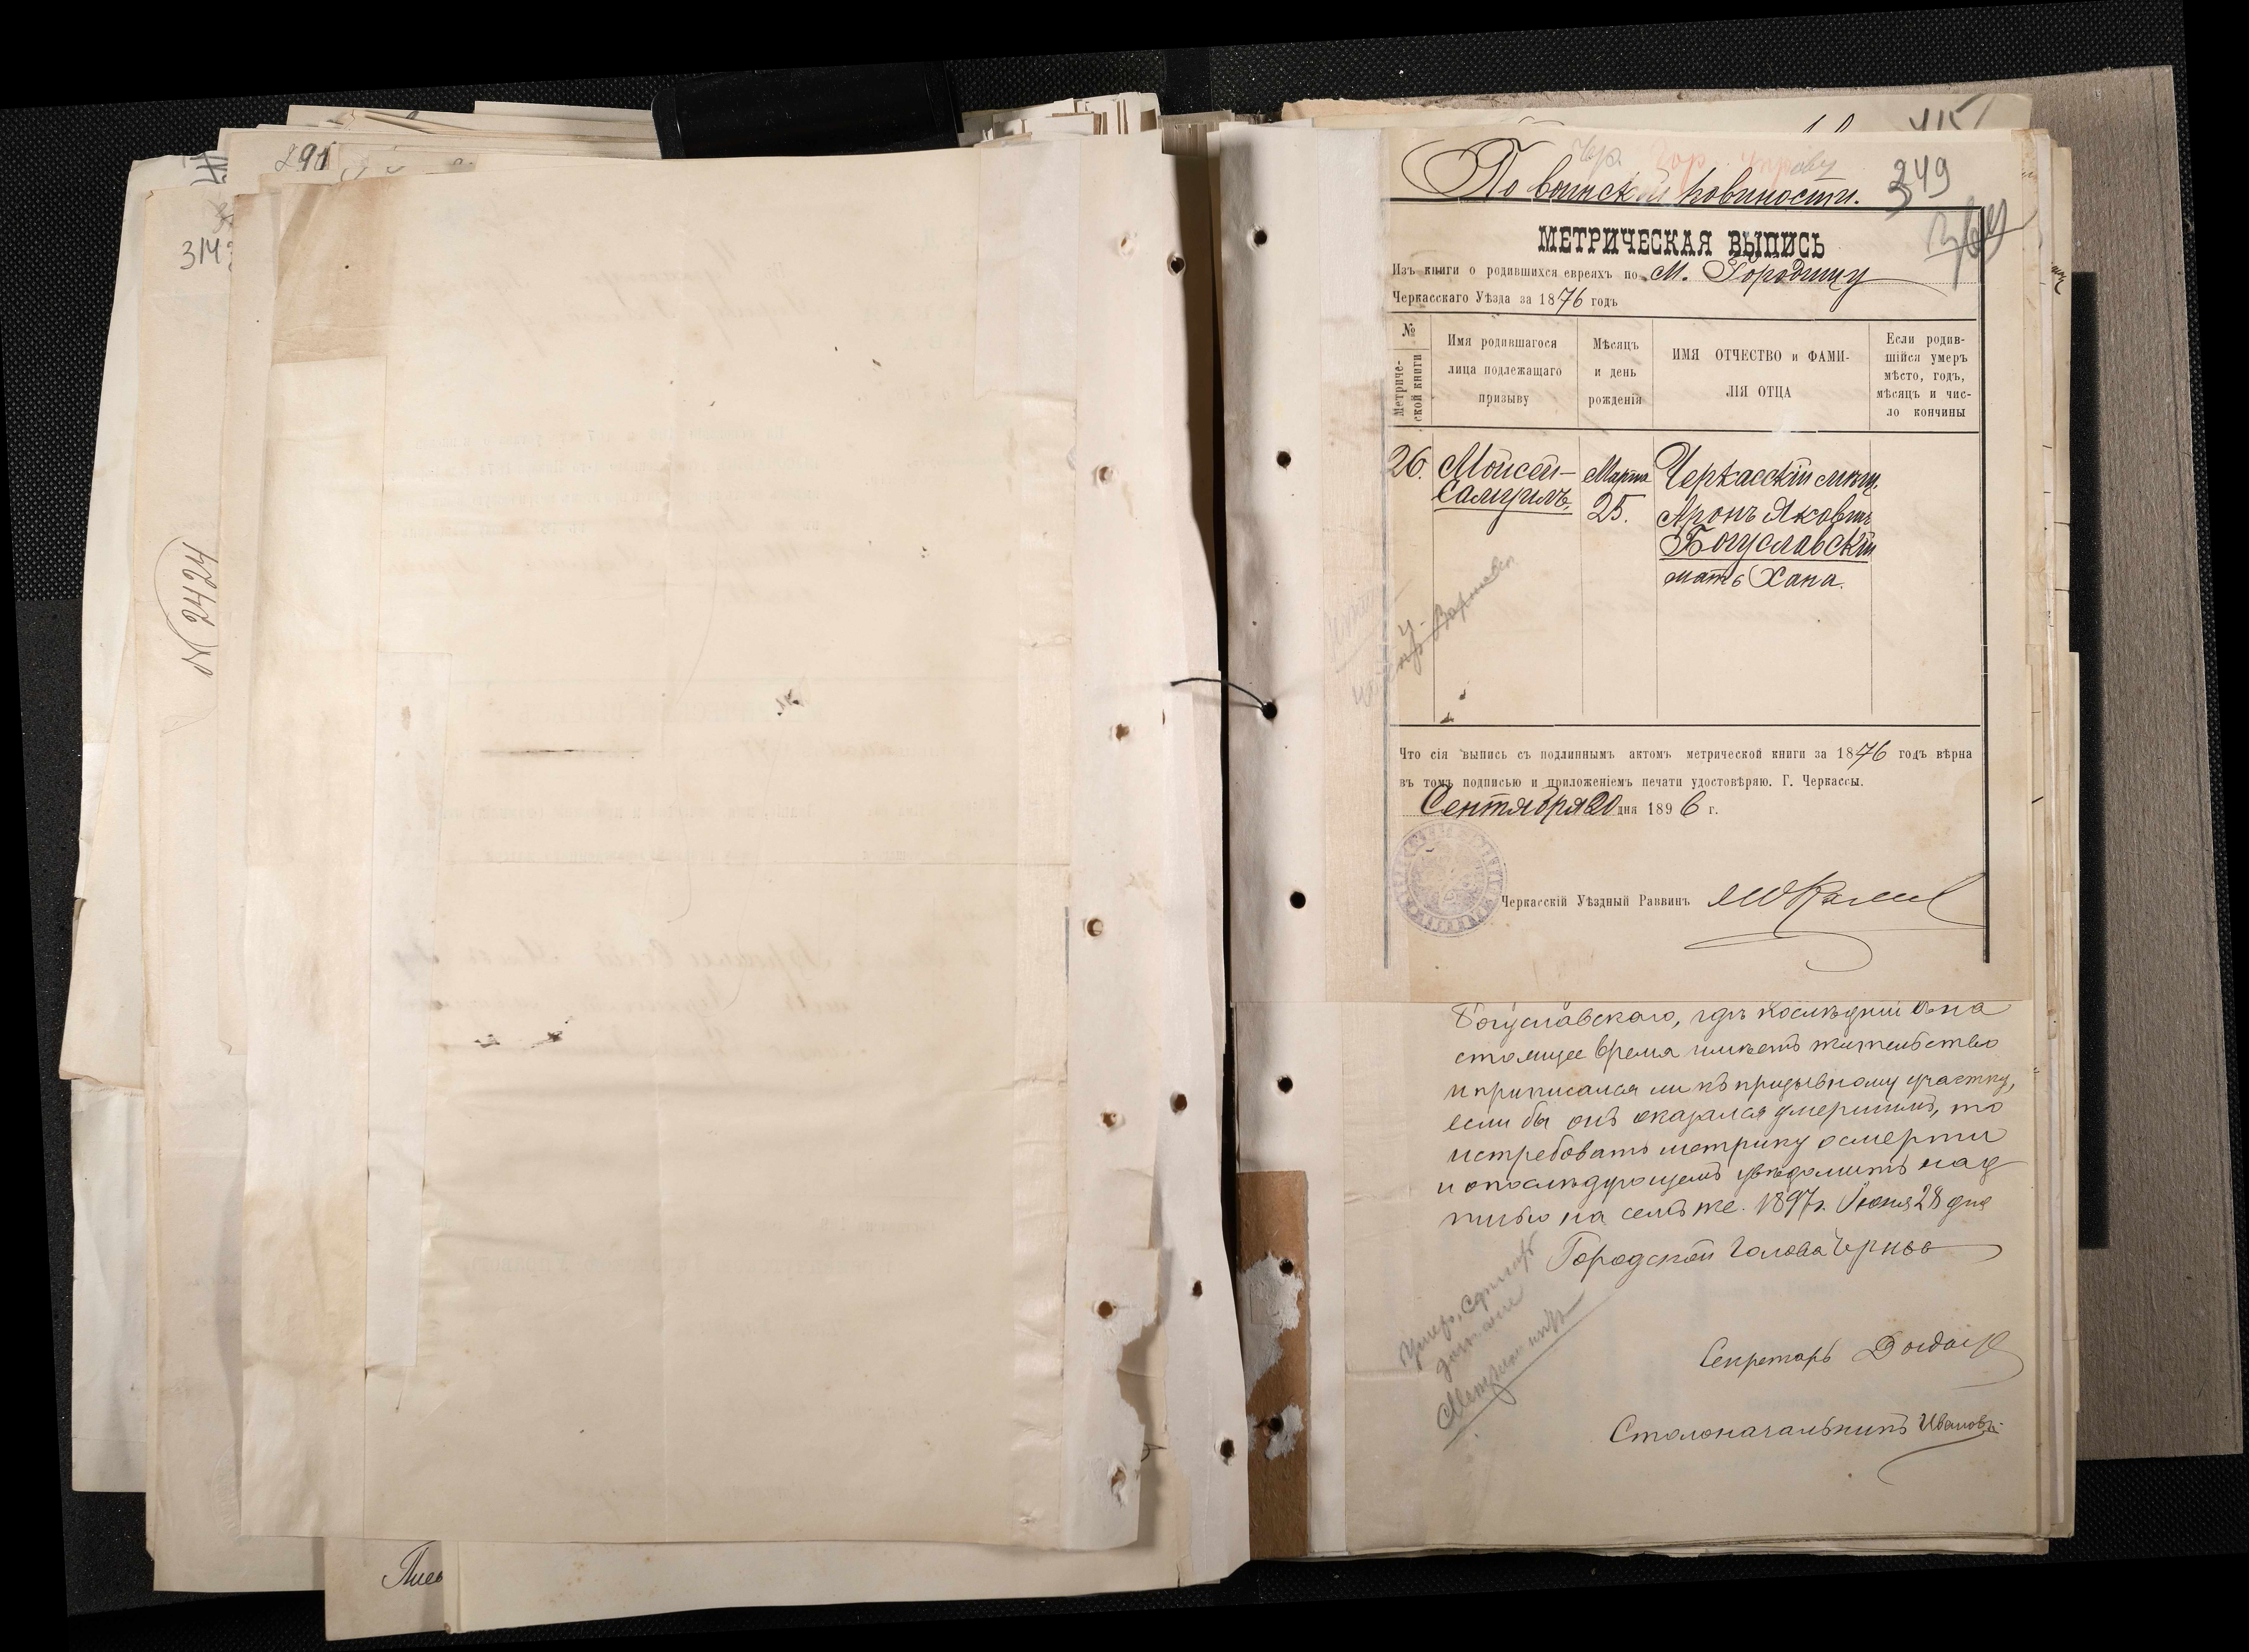 291
314
№ 2424
Пись
415
Чер. Гор. Управу
По воинской повиности.
349
МЕТРИЧЕСКАЯ ВЫПИСЬ
Изъ книги о родившихся евреяхъ по М. Городищу
Черкасскаго Уѣзда за 1876 годъ
№ Метрической книги
Имя родившагося лица подлежащаго призыву
Мѣсяцъ и день рожденія
ИМЯ ОТЧЕСТВО и ФАМИЛІЯ ОТЦА
Если родившійся умеръ мѣсто, годъ, мѣсяцъ и число кончины
26. Мойсей- Марта Черкасскій мѣщ.
Самуилъ. 25. Аронъ Яковичъ
Богуславскій
мать Хана.
Что сія выпись съ подлиннымъ актомъ метрической книги за 1876 годъ вѣрна
въ томъ подписью и приложеніемъ печати удостовѣряю. Г. Черкассы.
Сентября 20 дня 1896 г.
Черкасскій Уѣздный Раввинъ
Богуславскаго, гдѣ послѣдній въ на
стоящее время имѣетъ жительство
и приписался ли къ призывному участку,
если бы онъ оказался умершимъ, то
истребовать метрику о смерти
и о послѣдующемъ увѣдомить над
писью на семъ же. 1897 г. Іюня 28 дня
Городской Голова
Секретарь
Столоначальникъ Ивановъ